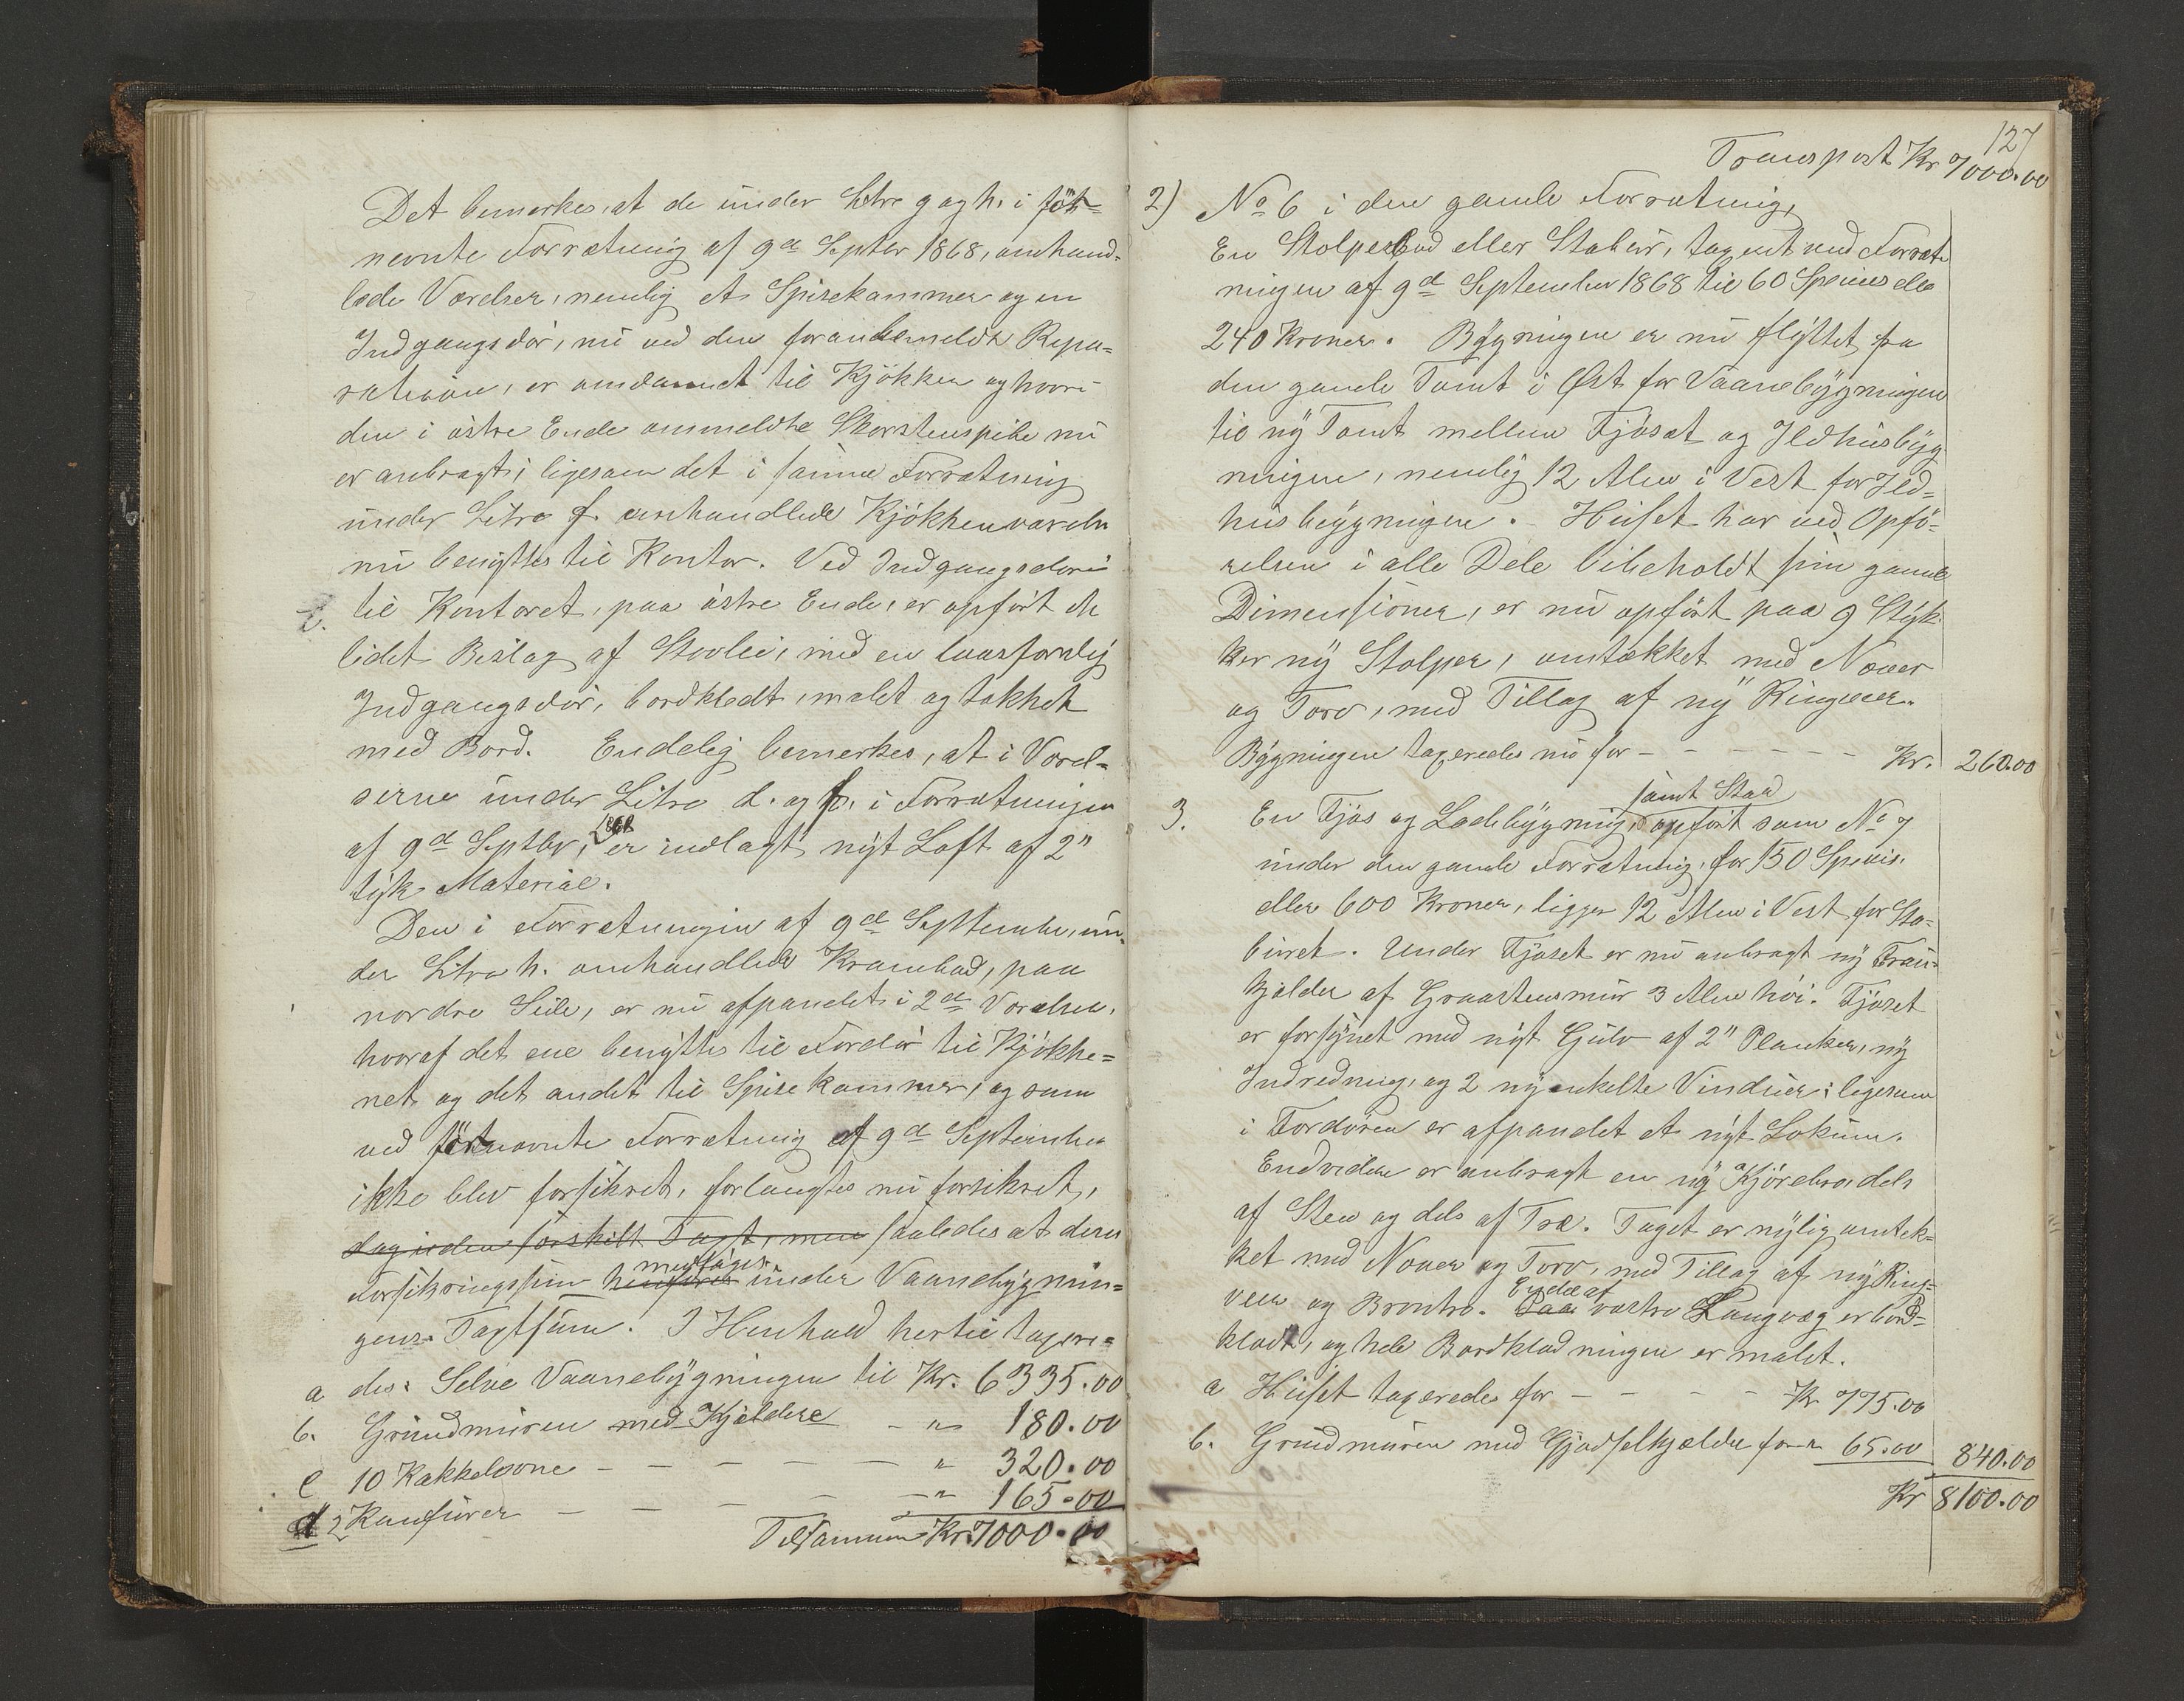 Det bemerkes, at de under Litra g og h. i först-
nevnte Forretning af 9de Septbr 1868, omhand-
lede Værelser, nemlig et Spisekammer og en
Indgangsdör, nu ved den foranbemeldte Repa-
ration, er omdannet til Kjökken og hvori
den i östre Ende ommeldte Skorstenspibe nu
er anbragt, ligesom det i samme Forretning
under Litra f. omhandlede Kjökkenværelse
nu benyttes til Kontor. Ved Indgangsdören
til Kontoret, paa östre Ende, er opfört et
lidet Bislag af Stovlei, med en laasfærdig
Indgangsdör, bordklædt, malet og tækket
med Bord. Endelig bemerkes, at i Værel-
serne under Litra d. og f. i Forretningen
af 9de Septbr, 1868 er indlagt nyt Loft af 2"
tyk Material.
Den i Forretningen af 9de September, un-
der Litra h. omhandlede Krambod, paa
nordre Side, er nu afpanelet i 2de Værelser,
hvoraf det ene benyttes til Fordör til Kjökke-
net og det andet til Spisekammer, og som
ved förstnævnte Forretning af 9de September
ikke blev forsikret, forlanges nu forsikret,
dog uden særskilt Taxt, men saaledes at deres
Forsikringssum henföres medtages under Vaanebygnin-
gens Taxtsum. I Henhold hertil taxere-
a des: Selve Vaanebygningen til Kr. 6335.00
b. Grundmuren med Kjeldere - " 180.00
c 10 Kakkelovne - - - - - " 320.00
d 2 Kanfurer - - - - - " 165.00
Tilsammen Kr. 7000.00
127
Transport Kr 7000.00
2) No 6 i den gamle Forretning,
En Stolpebod eller Stabur, taxeret ved Forret-
ningen af 9de September 1868 til 60 Species eller
240 Kroner. Bygningen er nu flyttet fra
den gamle Tomt i Öst for Vaanebygningen
til ny Tomt mellem Fjöset og Ildhusbyg-
ningen, nemlig 12 Alen i Vest for Ild-
husbygningen. Huset har ved Opfö-
relsen i alle Dele bibeholdt sin gamle
Dimensioner, er nu opfört paa 9 Styk-
ker ny Stolper, omtækket med Næver
og Torv, med Tillæg af ny Ringveer.
Bygningen taxeredes nu for - - - - - - Kr. 260.00
samt Stald
3. En Fjös og Ladebygning, opfört som No 7
under den gamle Forretning, for 150 Specis.
eller 600 Kroner, ligger 12 Alen i Vest for Sta-
buret. Under Fjöset er nu anbragt ny Frau-
kjelder af Graastensmur 3 Alen höi. Fjöset
er forsynet med nyt Gulv af 2" Planker, ny
Indredning, og 2 ny enkelte Vinduer; ligesom
i Fordören er afpanelet et nyt Lokum.
Endvidere er anbragt en ny Kjörebro, dels
af Sten og dels af Træ. Taget er nylig omtæk-
ket med Næver og Torv, med Tillæg af ny Ring-
veer og Brontro. Paa Endel af vestre Langvæg er bord-
klædt, og hele Bordklædningen er malet.
a Huset taxeredes for - - - - Kr. 775.00
b. Grundmuren med Gjødselkjælder for " 65.00 840.00
Kr 8100.00